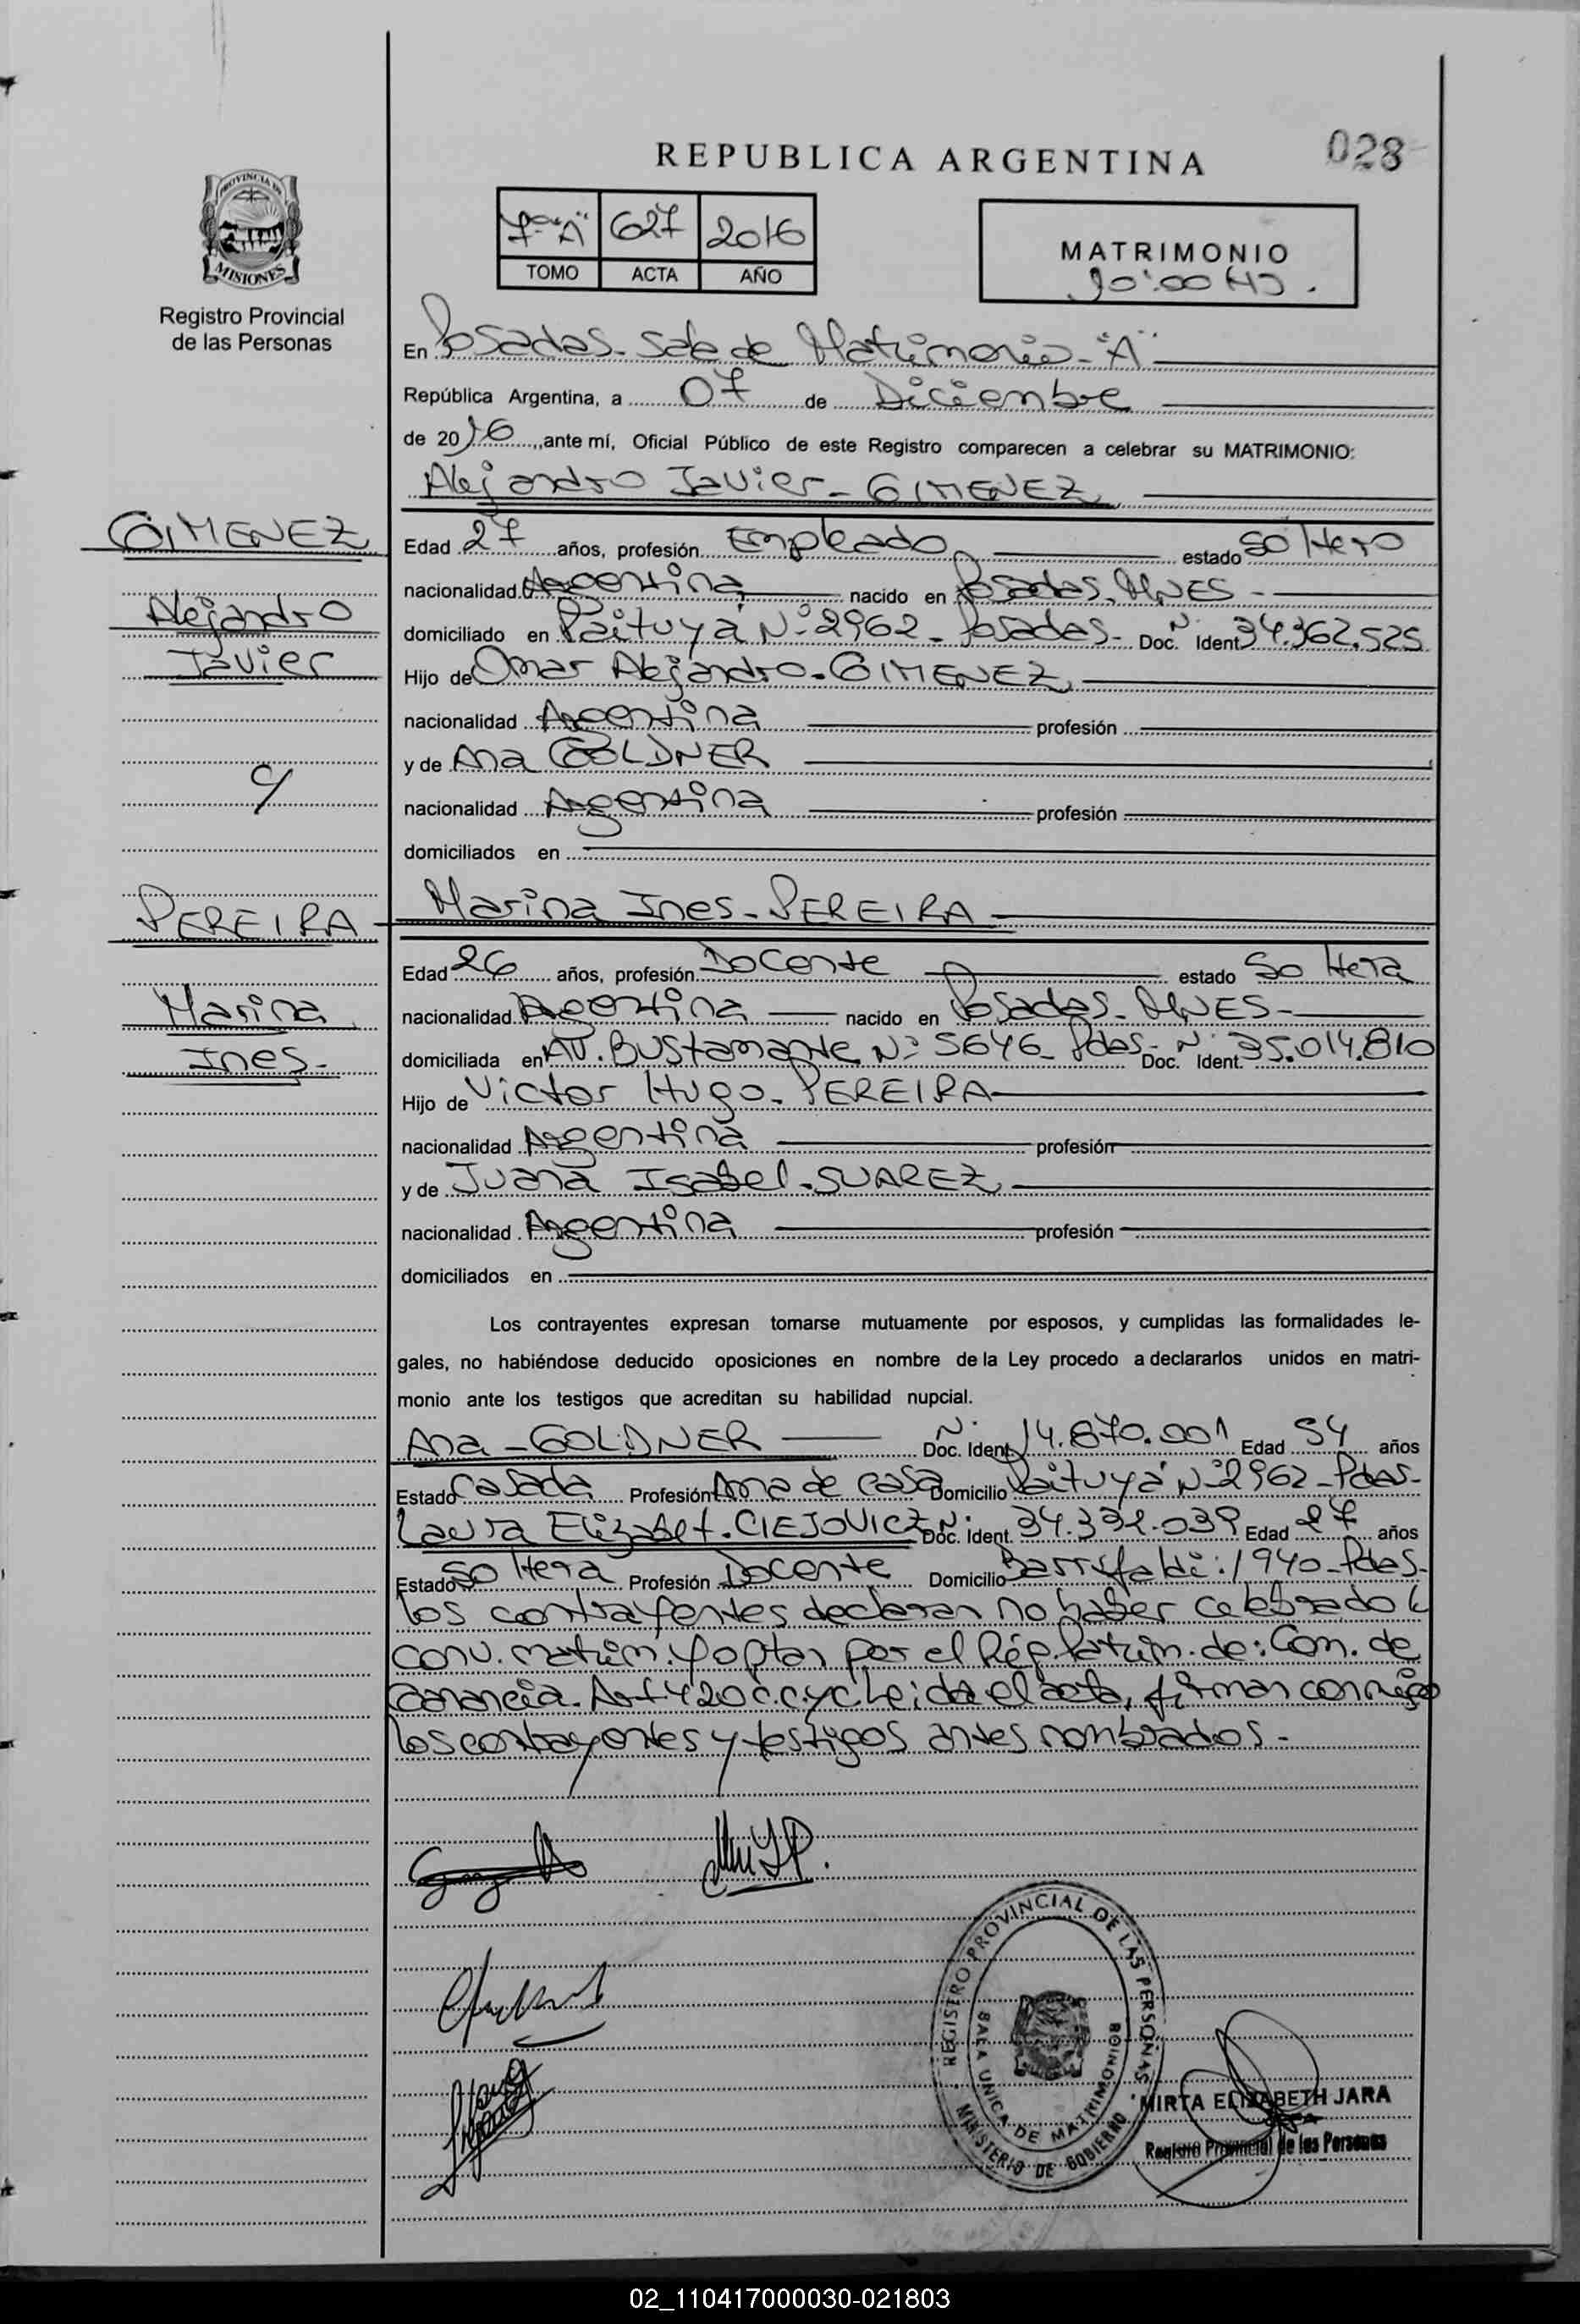 028
REPUBLICA ARGENTINA
PROVINCIA DE
MISIONES
Registro Provincial
de las Personas
7º "A" 627 2016
TOMO ACTA AÑO
MATRIMONIO
10:00 HS.
En Posadas - Sala de Matrimonio - "A"
República Argentina, a 07 de Diciembre
de 2016, ante mí, Oficial Público de este Registro comparecen a celebrar su MATRIMONIO:
Alejandro Javier - GIMENEZ
GIMENEZ
Alejandro
Javier
c/
PEREIRA
Marina
Ines -
Edad 27 años, profesión Empleado estado Soltero
nacionalidad Argentina nacido en Posadas, MNES -
domiciliado en Paituya Nº 2962 - Posadas - Doc. Nº Ident. 34.362.525
Hijo de Omar Alejandro - GIMENEZ
nacionalidad Argentina profesión
y de Ana GOLDNER
nacionalidad Argentina profesión
domiciliados en
Marina Ines - PEREIRA
Edad 26 años, profesión Docente estado Soltera
nacionalidad Argentina nacido en Posadas - MNES -
domiciliada en AV. Bustamante Nº 5646 - Pdas - Doc. Nº Ident. 35.014.810
Hijo de Victor Hugo - PEREIRA
nacionalidad Argentina profesión
y de Juana Isabel - SUAREZ
nacionalidad Argentina profesión
domiciliados en
Los contrayentes expresan tomarse mutuamente por esposos, y cumplidas las formalidades le-
gales, no habiéndose deducido oposiciones en nombre de la Ley procedo a declararlos unidos en matri-
monio ante los testigos que acreditan su habilidad nupcial.
Ana - GOLDNER Doc. Nº Ident. 14.870.001 Edad 54 años
Estado Casada Profesión Ama de casa Domicilio Paituya Nº 2962 - Pdas -
Laura Elizabet - CIEJOVICZ Doc. Nº Ident. 34.332.039 Edad 27 años
Estado Soltera Profesión Docente Domicilio Barrufaldi: 1940 - Pdas -
Los contrayentes declaran no haber celebrado
conv. matrim. y optan por el Rég. Patrim. de: Com. de
Ganancia. Art 420 C.C.y C Leida el acta, firman conmigo
los contrayentes y testigos antes nombrados -
REGISTRO PROVINCIAL DE LAS PERSONAS
SALA UNICA DE MATRIMONIOS
MINISTERIO DE GOBIERNO
MIRTA ELIZABETH JARA
Registro Provincial de las Personas
02_110417000030-021803